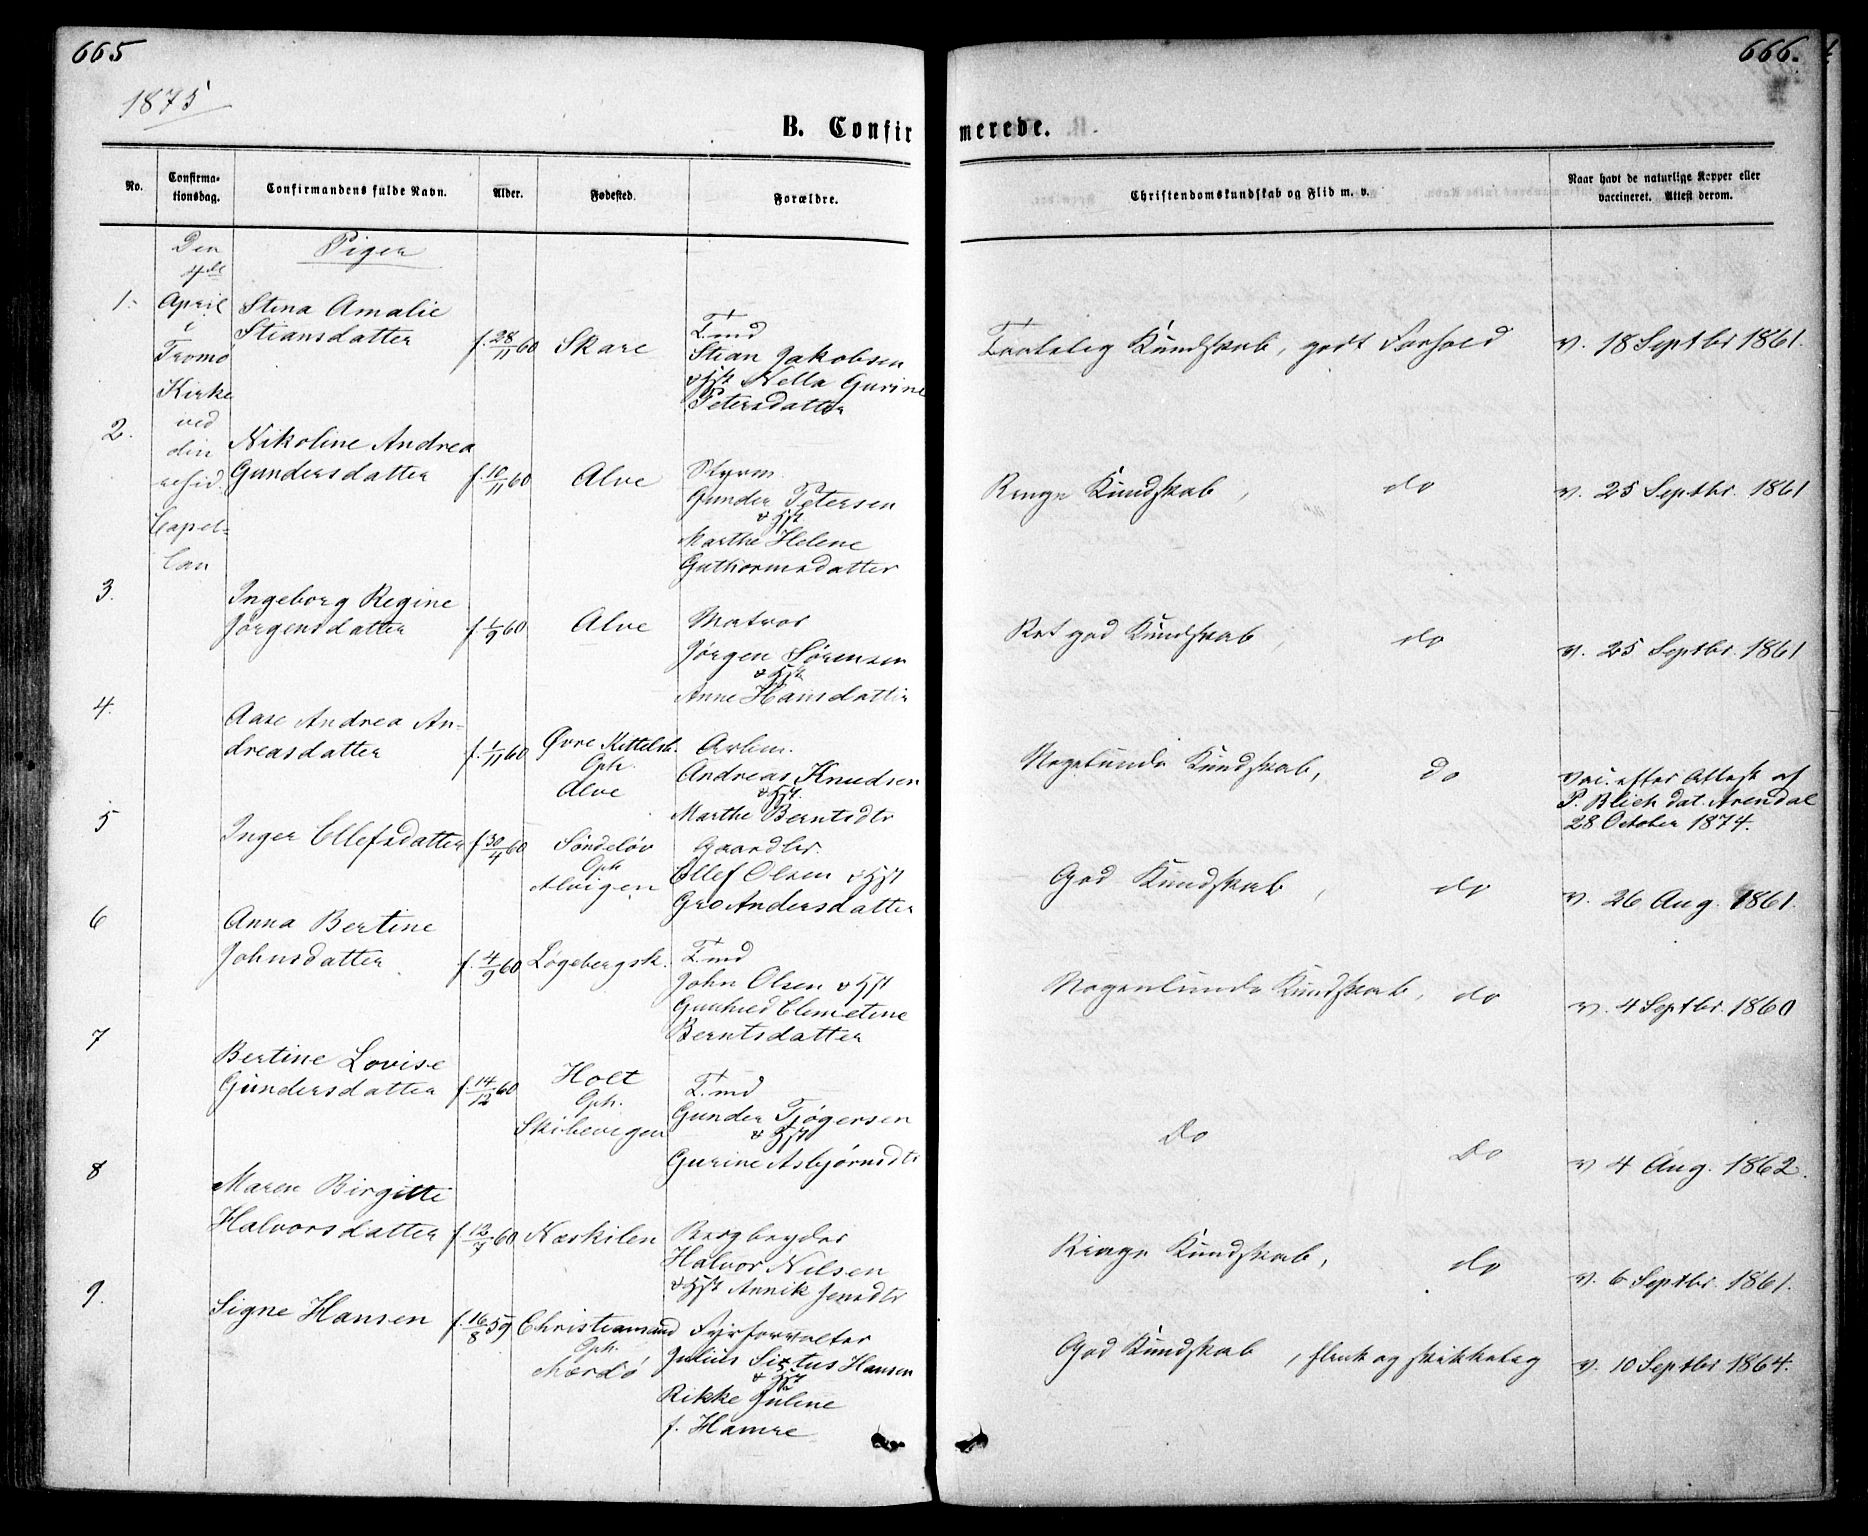 665
666.
1875
B. Confirmerede.
No.
Confirma-
tionsdag.
Confirmandens fulde Navn.
Alder.
Fødested.
Forældre.
Christendomskundskab og Flid m. v.
Naar havt de naturlige Kopper eller
vaccineret. Attest derom.
Den
4de
April
i
Tromø
Kirke
ved
den
resid.
Capel-
lan
Piger
1.
Stina Amalie
Stiansdatter
f. 28/11 60
Skare
T.md
Stian Jakobsen
& Hst Nella Gurine
Petersdatter
Taalelig Kundskab, godt Forhold
v. 18 Septbr 1861.
2.
Nikoline Andrea
Gundersdatter
f. 10/11 60
Alve
Styrm.
Gunder Petersen
& Hst
Marthe Helene
Guthormsdatter
Ringe Kundskab, do
v. 25 Septbr. 1861
3.
Ingeborg Regine
Jørgensdatter
f. 1/9 60
Alve
Matros
Jørgen Sørensen
& Hst
Anne Hansdatter
Ret god Kundskab, do
v. 25 Septbr. 1861
4.
Aase Andrea An-
dreasdatter
f. 1/11 60
Øvre Kittelsb.
Oph.
Alve
Arbm.
Andreas Knudsen
& Hst.
Marthe Berntsdtr
Nogenlunde Kundskab, do
Vac. efter Attest af
P. Blich dat. Arendal
28 October 1874.
5
Inger Ellefsdatter
f. 30/4 60
Søndeløv
Oph
Alvigen
Gaardbr.
Ellef Olsen & Hst
Gro Andersdatter
God Kundskab, do
v. 26 Aug. 1861.
6
Anna Bertine
Johnsdatter
f. 4/9 60
Løgebergsk.
T.md
John Olsen & Hst
Gunhild Clemetine
Berntsdatter
Nogenlunde Kundskab, do
v. 4 Septbr. 1860
7
Bertine Lovise
Gundersdatter
f. 14/12 60
Holt
Oph.
Skibevigen
T.md
Gunder Tjøgersen
& Hst
Gurine Asbjørnsdtr
Do Do
v 4 Aug. 1862.
8
Maren Birgitte
Halvorsdatter
f. 12/7 60
Næskilen
Bergbryder
Halvor Nilsen
& Hst Annik Jensdtr
Ringe Kundskab, do
v. 6 Septbr. 1861.
9.
Signe Hansen
f. 16/8 59
Christiansand
Oph.
Mærdø
Fyrforvalter
Julius Sixtus Hansen
& Hst
Rikke Juline
f. Hamre
God Kundskab, flink og skikkelig
v. 10 Septbr 1864.